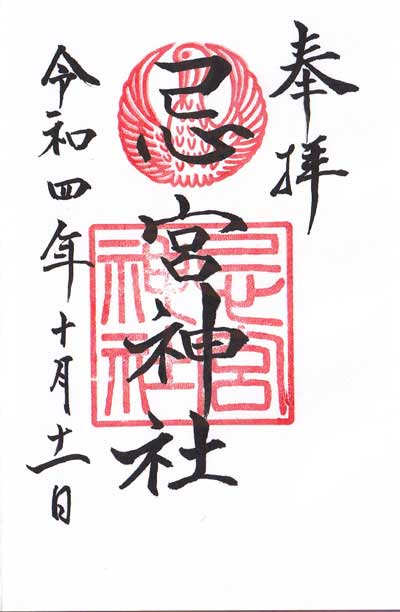 奉拝
忌宮神社
忌宮神社
令和四年十月十一日